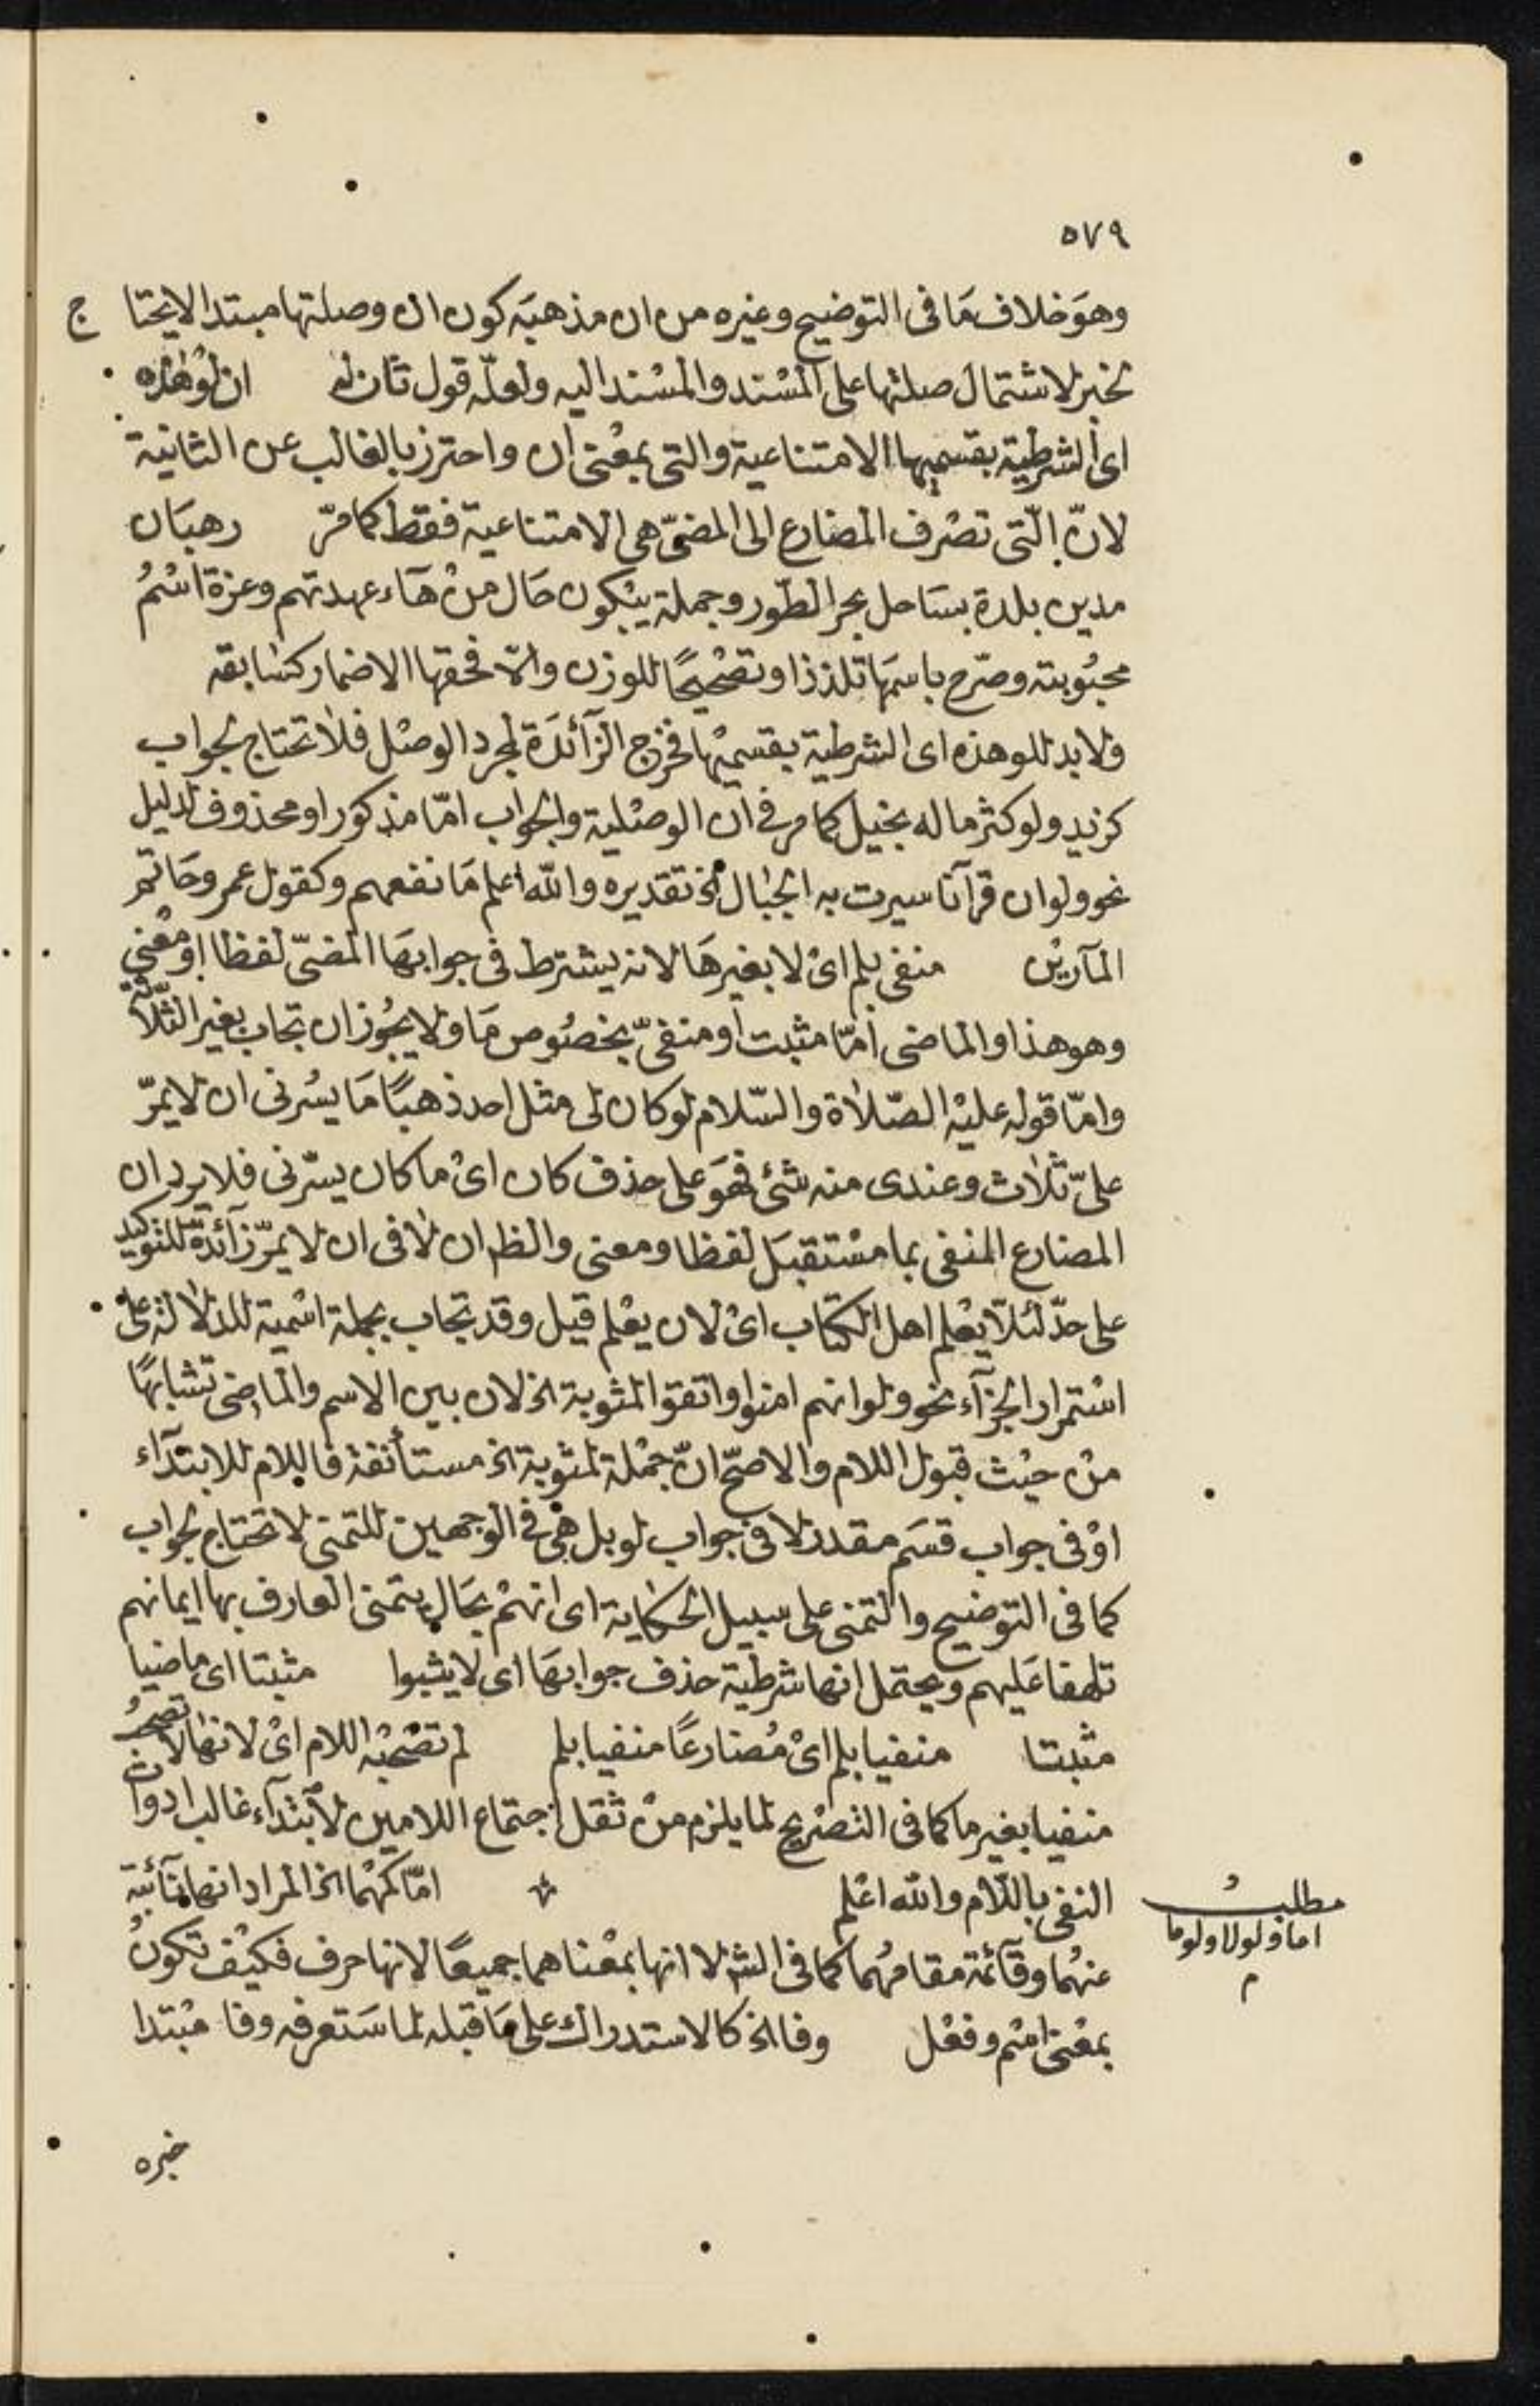 ٥٧٩
وهو خلاف ما في التوضيح وغيره من ان مذهبه كون ان وصلتها مبتدا لا يحتاج
لخبر لاشتمال صلتها على المسند والمسند اليه ولعله قول ثان له ان لو هذه
اى الشرطية بقسميها الامتناعية والتى بمعنى ان واحترز بالغالب عن الثانية
لانّ الّتى تصْرف المضارع الى المضىّ هى الامتناعية فقط كما مرّ رهبَان
مدين بلدة بسَاحل بحر الطّور وجملة يبْكون حَال منْ هَآء عهدتهم وعزة اسْمُ
محبُوبته وصرّح باسمَها تلذذا وتصْحيحًا للوزن والّا فحقها الاضمار كسَابقه
ولا بد للو هذه اى الشرطية بقسميْها فخرج الزّآئدَة لمجرد الوصْل فلا تحتاج لجواب
كزيد ولو كثر ماله بخيل كما مر فى ان الوصْلية والجواب امّا مذكور او محذوف لدليل
نحو ولو ان قرآنا سيرت به الجبال الخ تقديره والله اعلم مَا نفعهم وكقول عمر وحَاتم
المآريْن منفى بلم اىْ لا بغيرهَا لانه يشترط فى جوابهَا المضىّ لفظا اوْ معْنى
وهو هذا والماضى امّا مثبت او منفىّ بخصُوص مَا ولا يجُوز ان تجاب بغير الثّلاثة
وامّا قوله عليْه الصّلاة والسّلام لو كان لى مثل احد ذهبًا مَا يسُرنى ان لا يمرّ
علىّ ثلاث وعندى منه شئ فهوَ على حذف كان اىْ ما كان يسرّنى فلا يرد ان
المضارع المنفى بما مسْتقبَل لفظا ومعنى والظ ان لا فى ان لا يمرّ زآئدة للتوكيد
على حدّ لئلّا يعْلم اهل الكتاب اىْ لان يعْلم قيل وقد تجاب بجملة اسْمية للدلالة على
اسْتمرار الجزآء نحو ولو انهم امنوا واتقوا لمثوبة الخ لان بين الاسم والماضى تشابهًا
منْ حيْث قبول اللام والاصحّ انّ جمْلة لمثوبة الخ مستأنفة فاللام للابتدآء
اوْ فى جواب قسَم مقدر لا فى جواب لو بل هى فى الوجهين للتمنى لا تحتاج لجواب
كما فى التوضيح والتمنى على سبيل الحكاية اى انهمْ بحَال يتمنى العارف بها ايمانهم
تلهفا عَليهم ويحتمل انها شرطية حذف جوابهَا اى لا يثبوا مثبتا اى ماضيا
مثبتا منفيا بلم اىْ مُضارعًا منفيا بلم لم تصْحبْه اللام اىْ لانها لا تصحبُ
منفيا بغير ما كما فى التصْريح لما يلزم منْ ثقل اجتماع اللامين لابْتدآء غالب ادوات
النفى باللّام والله اعْلم امّا كمهْما الخ المراد انها نآئبة
عنهُما وقآئمة مقامهُما كما فى الش لا انها بمعْناهما جميعًا لانها حرف فكيْف تكونُ
بمعْنى اسْم وفعْل وفا الخ كالاستدراك على مَا قبله لما سَتعرفه وفا مبْتدا
مطلب
اما ولولا ولوما
م
خبره